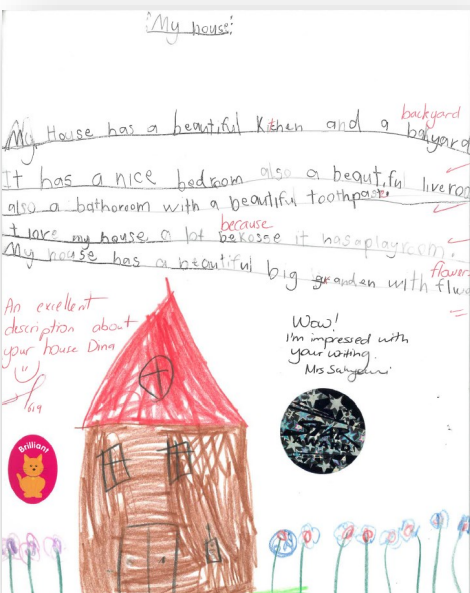 "My house"
backyard
My House has a beautiful Kitchen and a bakyard
It has a nice bedroom also a beautiful liveroo
also a bathoroom with a beautiful toothpaste.
because
I love my house a lot bekosse it has a playroom.
flower
My house has a beautiful big granden with flwo
An excellent
description about
your house Dina
Wow!
I'm impressed with
your writing.
Mrs
Brilliant